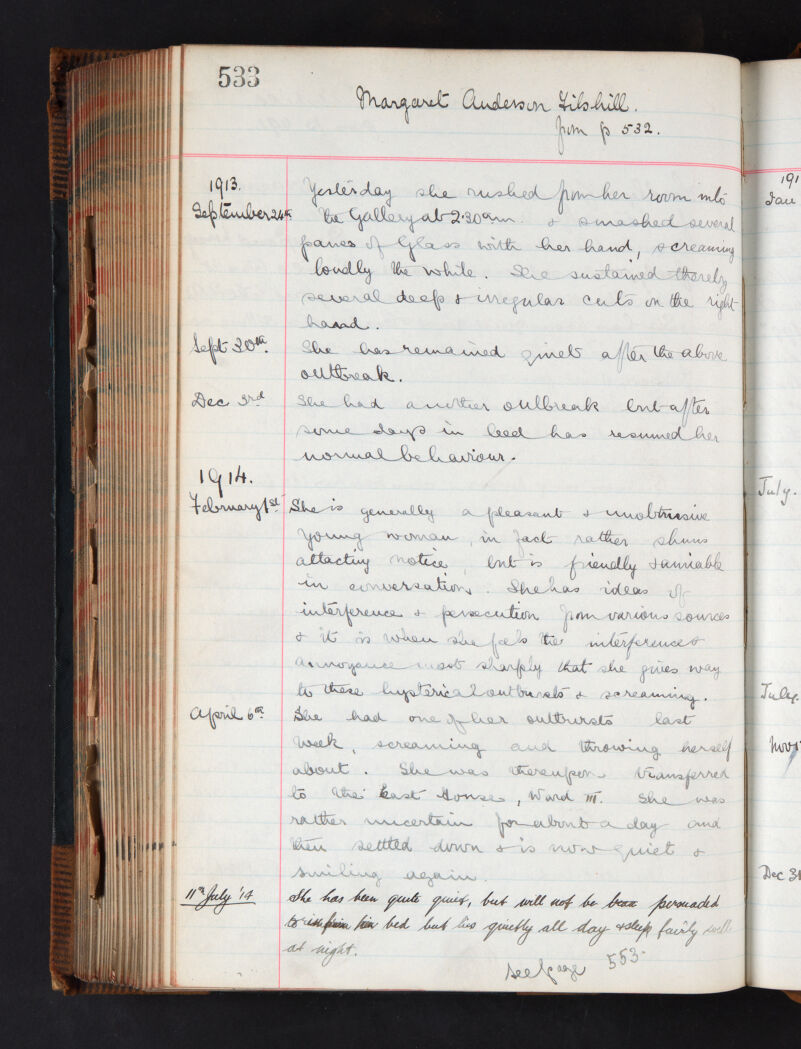 533
Margaret Anderson Gilshill.
from p 532.
1913. Yesterday she rushed from her room into
September 24th the Gallery at 2.30am. & smashed several
panes of Glass with her hand, screaming
loudly the while. She sustained thereby
several deep & irregular cuts on the right
hand.
Sept 30th. She has remained quiet after the above
outbreak.
Dec 3rd She had another outbreak but after
some days in bed has resumed her
normal behaviour.
1914.
February 1st She is generally a pleasant & unobtrusive
young woman, in fact rather shuns
attacting notice, but is friendly & amiable
in conversation. She has ideas of
interference & persecution from various sources
& it is when she feels the interference &
annoyance most sharply that she gives way
to these hysterical outbursts & screaming.
April 6th. She had one of her outbursts last
week, screaming and throwing herself
about. She was thereupon transferred
to the East House, Ward III. She was
rather uncertain for about a day and
then settled down & is now quiet &
smiling again.
11th July '14 She has been quite quiet, but will not be persuaded
to bed but lies quietly all day & sleeps fairly well
at night.
see page 553.
191
Jan
July.
July.
Nov
Dec 31